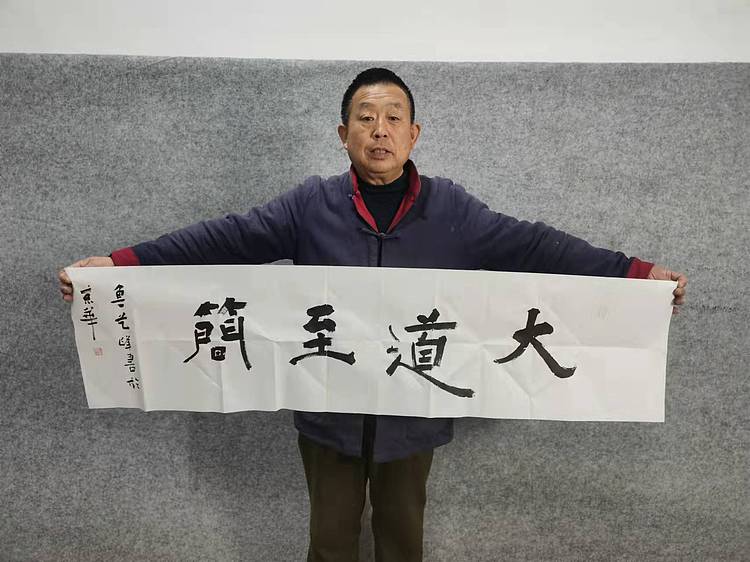 大道至簡
魯芝峰書於
京華